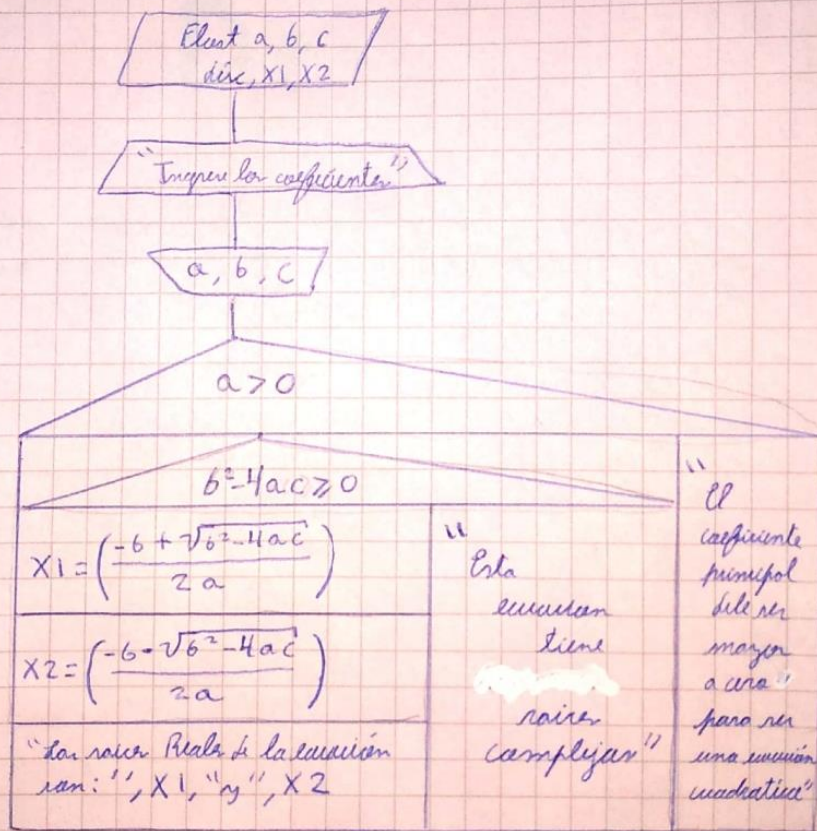 Float a, b, c
disc, X1, X2
"Ingrese los coeficientes"
a, b, c
a > 0
b²-4ac ≥ 0
X1 = (-b + √b²-4ac / 2a)
X2 = (-b - √b²-4ac / 2a)
"Las raíces Reales de la ecuación
son: ", X1, "y", X2
"
Esta
ecuacion
tiene
raices
complejas"
"
El
coeficiente
principal
debe ser
mayor
a cero"
para ser
una ecuación
cuadratica"